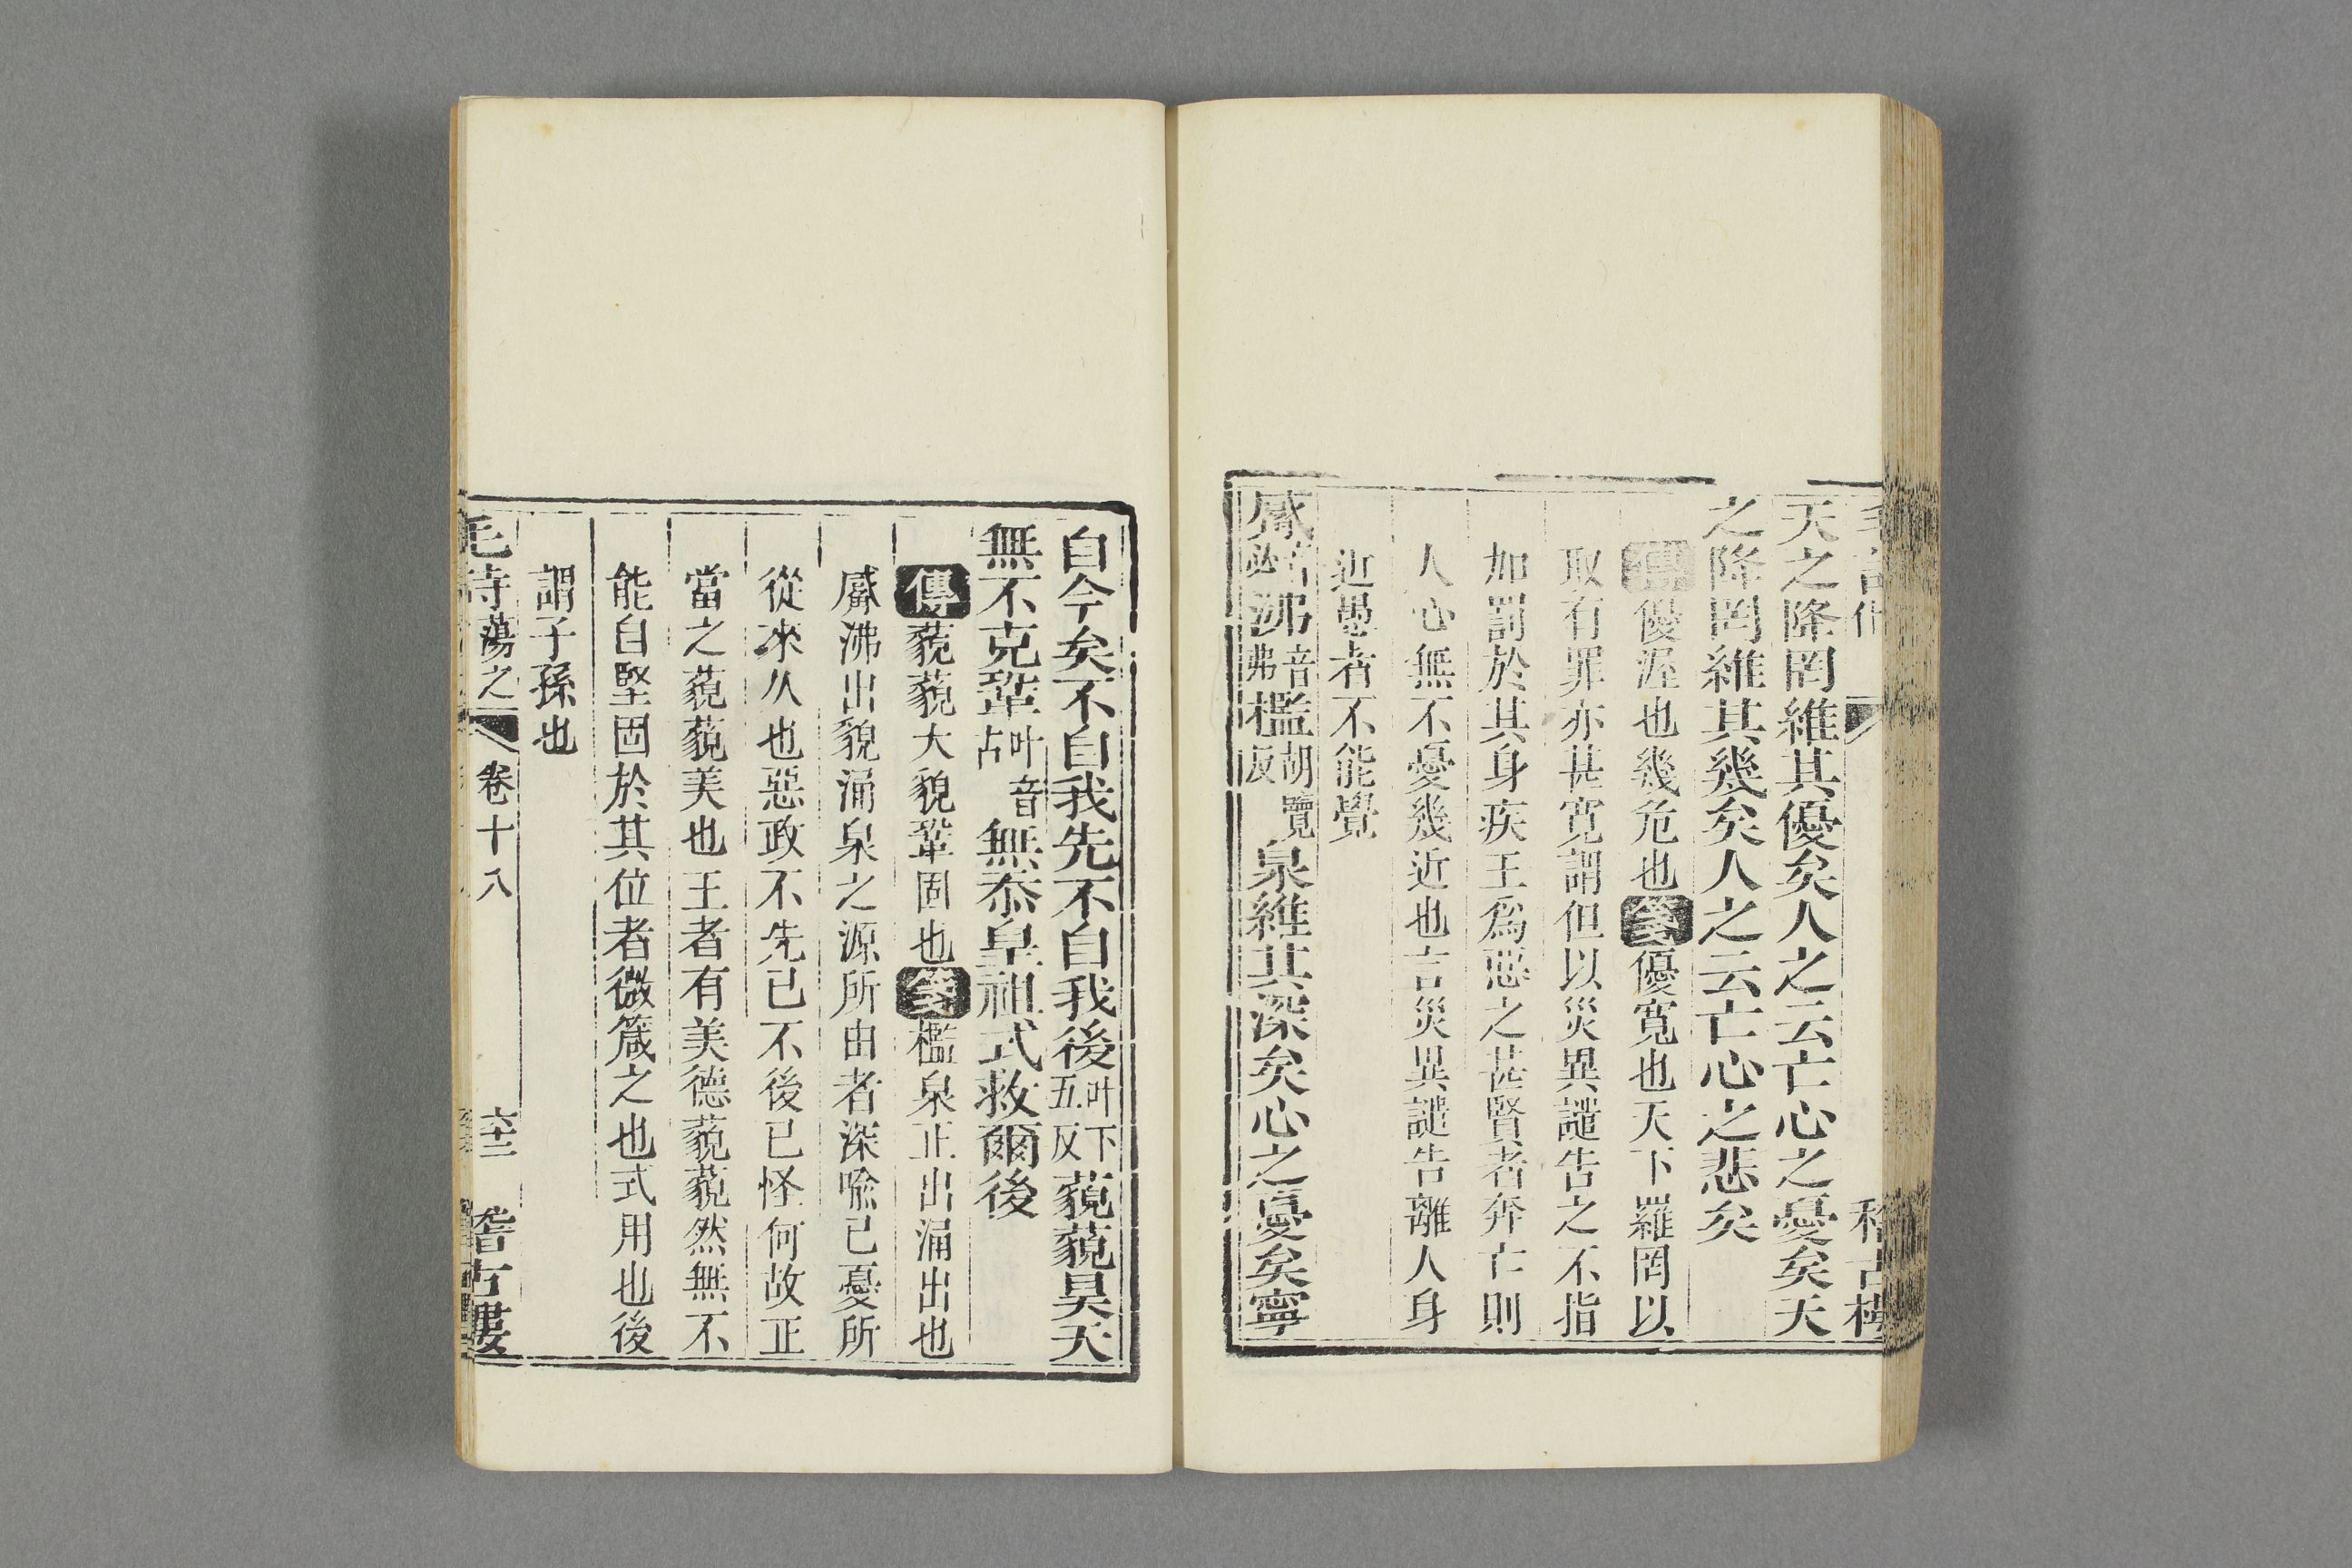 天之降罔維其優矣人之云亡心之憂矣天
之降罔維其幾矣人之云亡心之悲矣
傳優渥也幾危也箋優寬也天下羅罔以
取有罪亦甚寬謂但以災異譴告之不指
如罰於其身疾王爲惡之甚賢者奔亡則
人心無不憂幾近也言災異譴告離人身
近愚者不能覺
觱沸音弗檻胡覽反泉維其深矣心之憂矣寧
自今矣不自我先不自我後叶下五反藐藐昊天
無不克鞏叶音古無忝皇祖式救爾後
傳藐藐大貌鞏固也箋檻泉正出涌出也
觱沸出貌涌泉之源所由者深喩己憂所
從來久也惡政不先已不後已怪何故正
當之藐藐美也王者有美德藐藐然無不
能自堅固於其位者微箴之也式用也後
謂子孫也
毛詩蕩之 卷十八 六十二 稽古樓